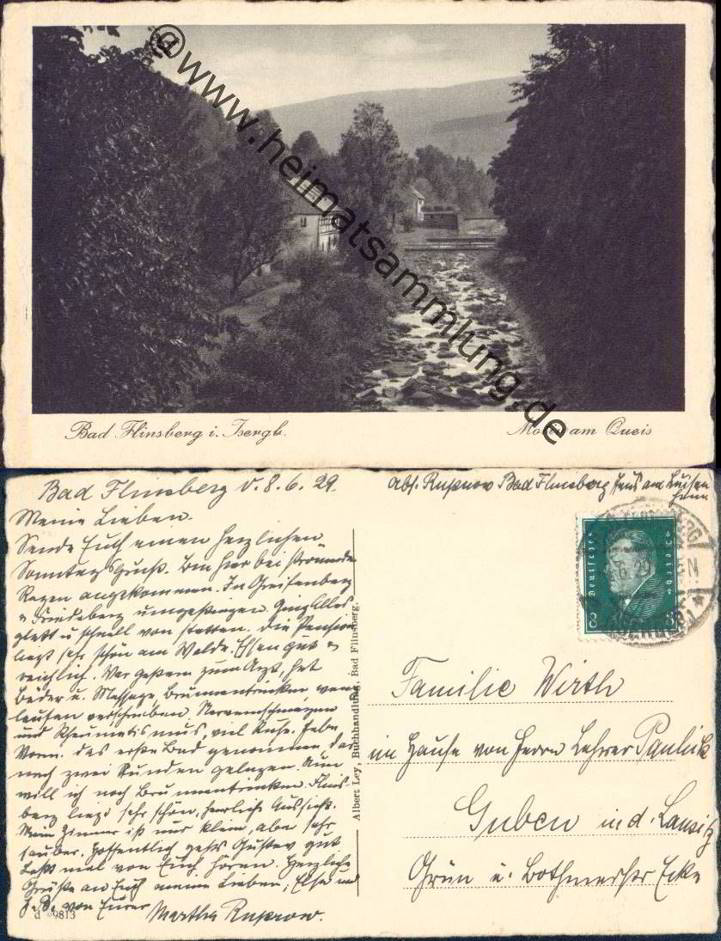 @www.heimatsammlung.de
Bad Flinsberg i. Isergb.
Motiv am Queis
Bad Flinsberg d. 8. 6. 29.
Abs. Ruprow Bad Flinsberg Haus am
Meine Lieben.
Sende Euch einen herzlichen
Sonntagsgruß. Bin hier bei strömenden
Regen angekommen. In Greifenberg
u Friedeberg umgestiegen ging Alles
glatt u schnell von statten. Die Pension
liegt sehr schön am Walde. Essen gut u
reichlich. War gestern zum Arzt, hat
Bäder u. Massage, Brunnentrinken, wenig
laufen verschrieben. Nervenschmerzen
und Rheumatismus, viel Ruhe. Habe
Vorm. das erste Bad genommen, dar
nach zwei Stunden gelegen. Nun
will ich noch Brunnentrinken. Flins-
berg liegt sehr schön, herrliche Aussicht.
Mein Zimmer ist nur klein, aber sehr
sauber. Hoffentlich gehts Gustav gut.
Laßt mal von Euch hören. Herzliche
Grüße an Euch meine Lieben, Else und
von Eurer
Martha Ruprow.
d 9813
Albert Ley, Buchhandlung, Bad Flinsberg.
Deutsches Reich
8 8
6.29
Familie Wirth
im Hause von Herrn Lehrer Paulick
Guben in d. Lausitz
Grün u. Bothmerstr Ecke